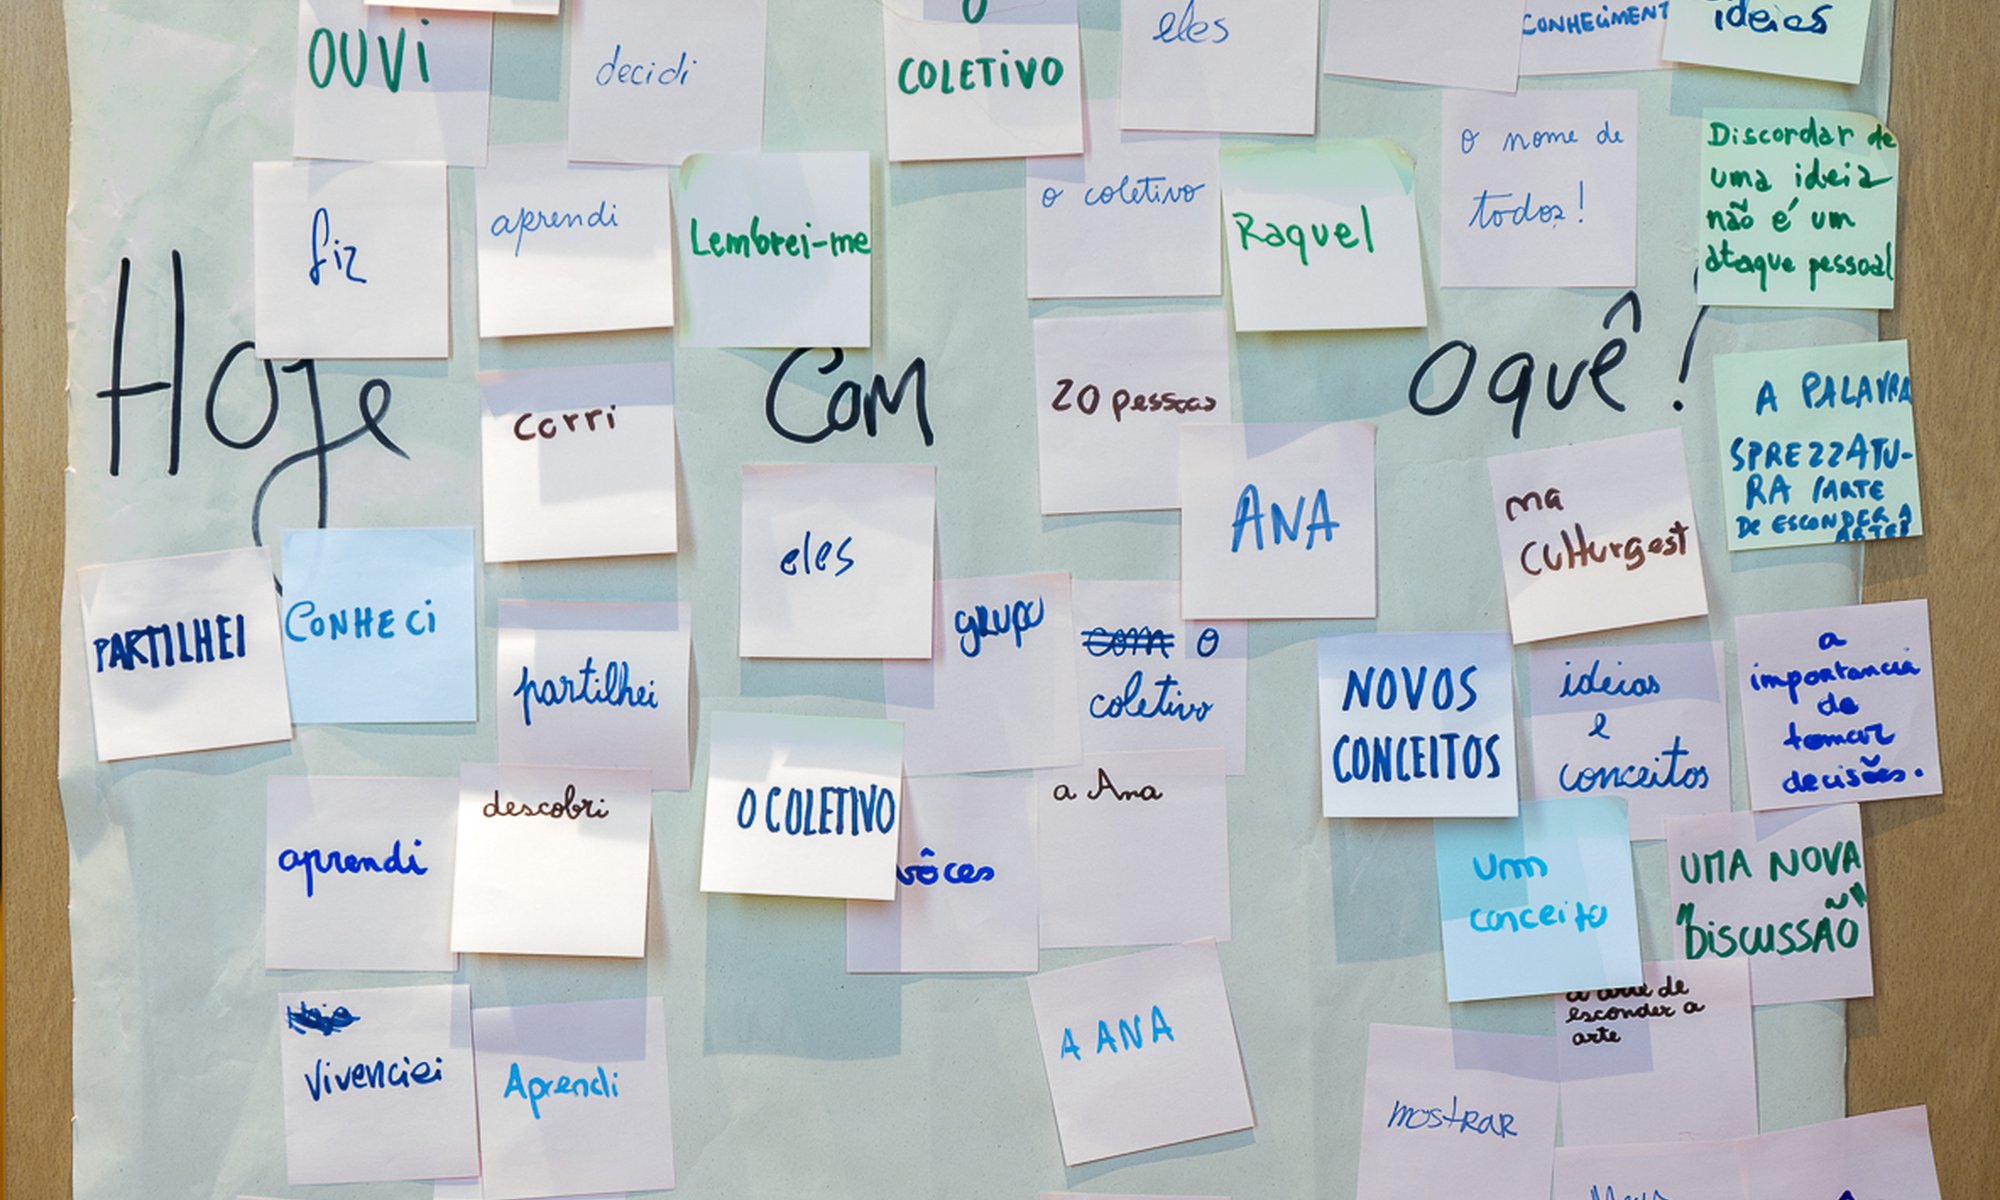 OUVI
decidi
COLETIVO
eles
CONHECIMENT
ideias
fiz
aprendi
Lembrei-me
o coletivo
Raquel
o nome de
todos!
Discordar de
uma ideia
não é um
ataque pessoal
Hoje
Com
O quê!
corri
20 pessoas
A PALAVRA
SPREZZATU-
RA
DE ESCONDER A
ARTE!
eles
ANA
na
Culturgest
PARTILHEI
CONHECI
partilhei
grupo
com o
coletivo
NOVOS
CONCEITOS
ideias
e
conceitos
a
importancia
de
tomar
decisões.
aprendi
descobri
O COLETIVO
vôces
a Ana
um
conceito
UMA NOVA
"DISCUSSÃO"
a arte de
esconder a
arte
Vivenciei
Aprendi
A ANA
mostrar